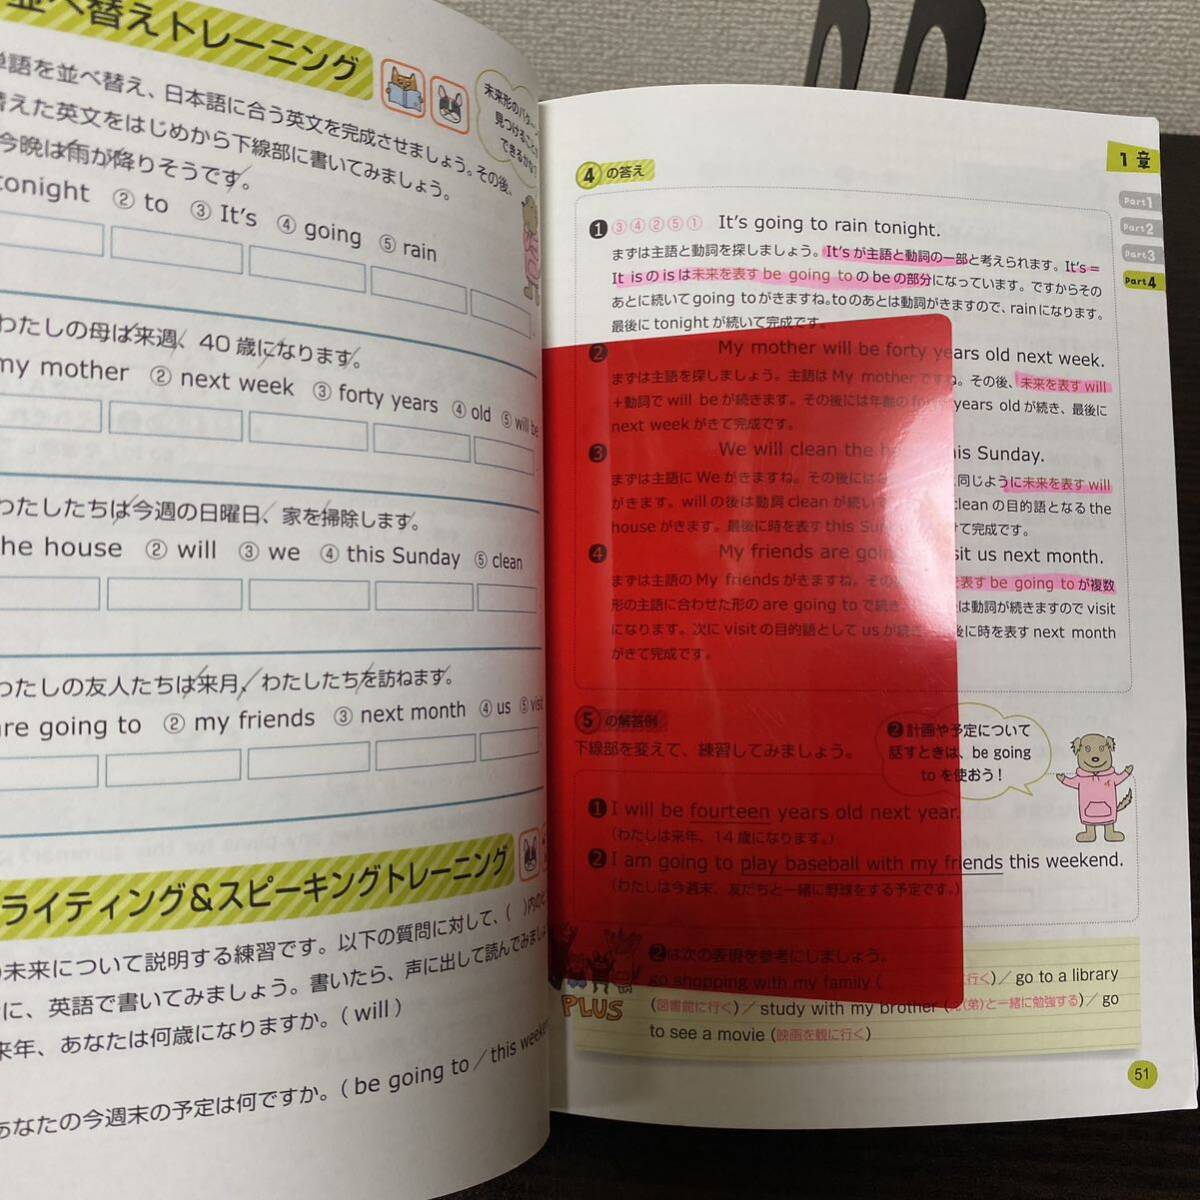 並べ替えトレーニング
単語を並べ替え、日本語に合う英文を完成させましょう。その後、
替えた英文をはじめから下線部に書いてみましょう。
未来形のパターン
見つけることが
できるかな?
今晩は雨が降りそうです。
tonight ② to ③ It's ④ going ⑤ rain
わたしの母は来週、40歳になります。
my mother ② next week ③ forty years ④ old ⑤ will be
わたしたちは今週の日曜日、家を掃除します。
the house ② will ③ we ④ this Sunday ⑤ clean
わたしの友人たちは来月、わたしたちを訪ねます。
are going to ② my friends ③ next month ④ us ⑤ visit
ライティング&スピーキングトレーニング
未来について説明する練習です。以下の質問に対して、( )内の
に、英語で書いてみましょう。書いたら、声に出して読んでみましょ
来年、あなたは何歳になりますか。( will )
あなたの今週末の予定は何ですか。( be going to / this weekend
1章
Part1
Part2
Part3
Part4
④ の答え
❶ ③④②⑤① It's going to rain tonight.
まずは主語と動詞を探しましょう。It'sが主語と動詞の一部と考えられます。It's=
It is のisは未来を表す be going to のbeの部分になっています。ですからその
あとに続いて going to がきますね。toのあとは動詞がきますので、rainになります。
最後に tonight が続いて完成です。
❷ My mother will be forty years old next week.
まずは主語を探しましょう。主語は My mother ですね。その後、未来を表す will
+動詞で will be が続きます。その後には年齢の forty years old が続き、最後に
next week がきて完成です。
❸ We will clean the house this Sunday.
まずは主語に We がきますね。その後には 同じように未来を表す will
がきます。will の後は動詞 clean が続い clean の目的語となる the
house がきます。最後に時を表す this Sun けて完成です。
❹ My friends are going visit us next month.
まずは主語の My friends がきますね。その 表す be going to が複数
形の主語に合わせた形の are going to で続き、 は動詞が続きますので visit
になります。次に visit の目的語として us が続き 後に時を表す next month
がきて完成です。
⑤ の解答例
下線部を変えて、練習してみましょう。
❷ 計画や予定について
話すときは、be going
to を使おう!
❶ I will be fourteen years old next year.
(わたしは来年、14歳になります。)
❷ I am going to play baseball with my friends this weekend.
(わたしは今週末、友だちと一緒に野球をする予定です。)
PLUS
❷は次の表現を参考にしましょう。
go shopping with my family ( 行く)/ go to a library
(図書館に行く)/ study with my brother (兄(弟)と一緒に勉強する)/ go
to see a movie (映画を観に行く)
51